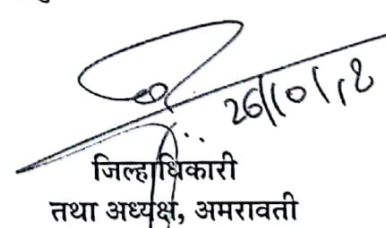 26/10/18
जिल्हाधिकारी
तथा अध्यक्ष, अमरावती